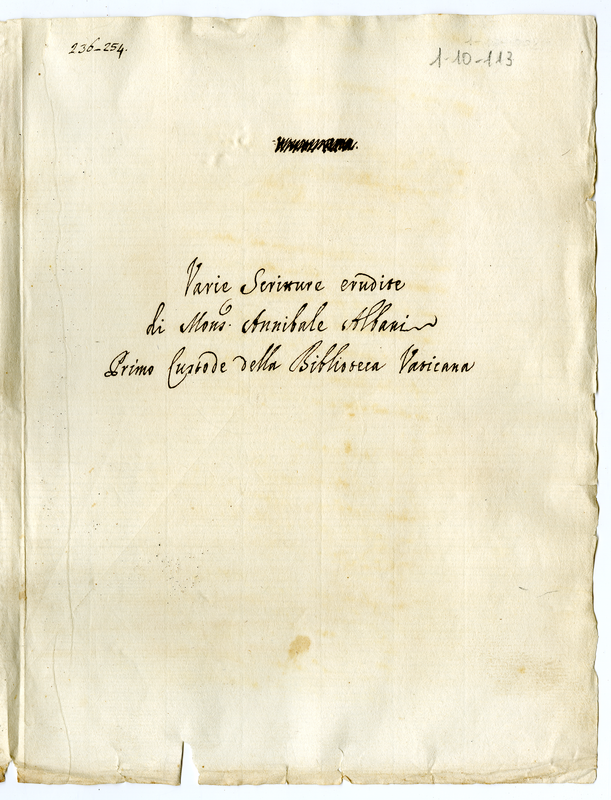 236-254.
1-10-113
Varie Scritture erudite
di Mons.r Annibale Albani
Primo Custode della Biblioteca Vaticana